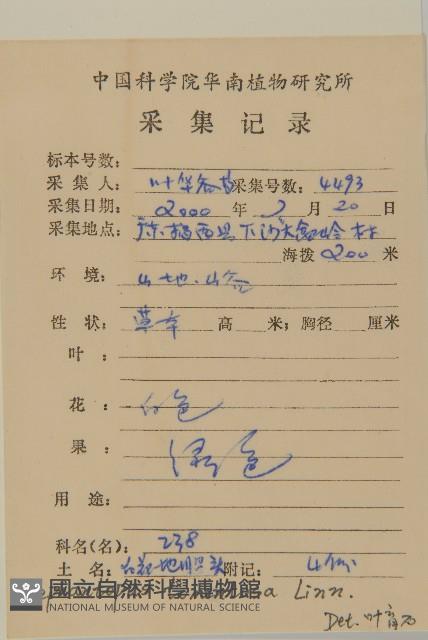 中国科学院华南植物研究所
采集记录
标本号数:
采集人: 叶华谷 采集号数: 4493
采集日期: 2000 年 7 月 20 日
采集地点: 广东 揭西县
海拨 200 米
环境: 山地.山谷
性状: 草本 高 米; 胸径 厘米
叶:
花: 白色
果: 绿色
用途:
科名(名): 238
土名: 附记: 4份
國立自然科學博物館
NATIONAL MUSEUM OF NATURAL SCIENCE
Linn.
Det. 叶育石